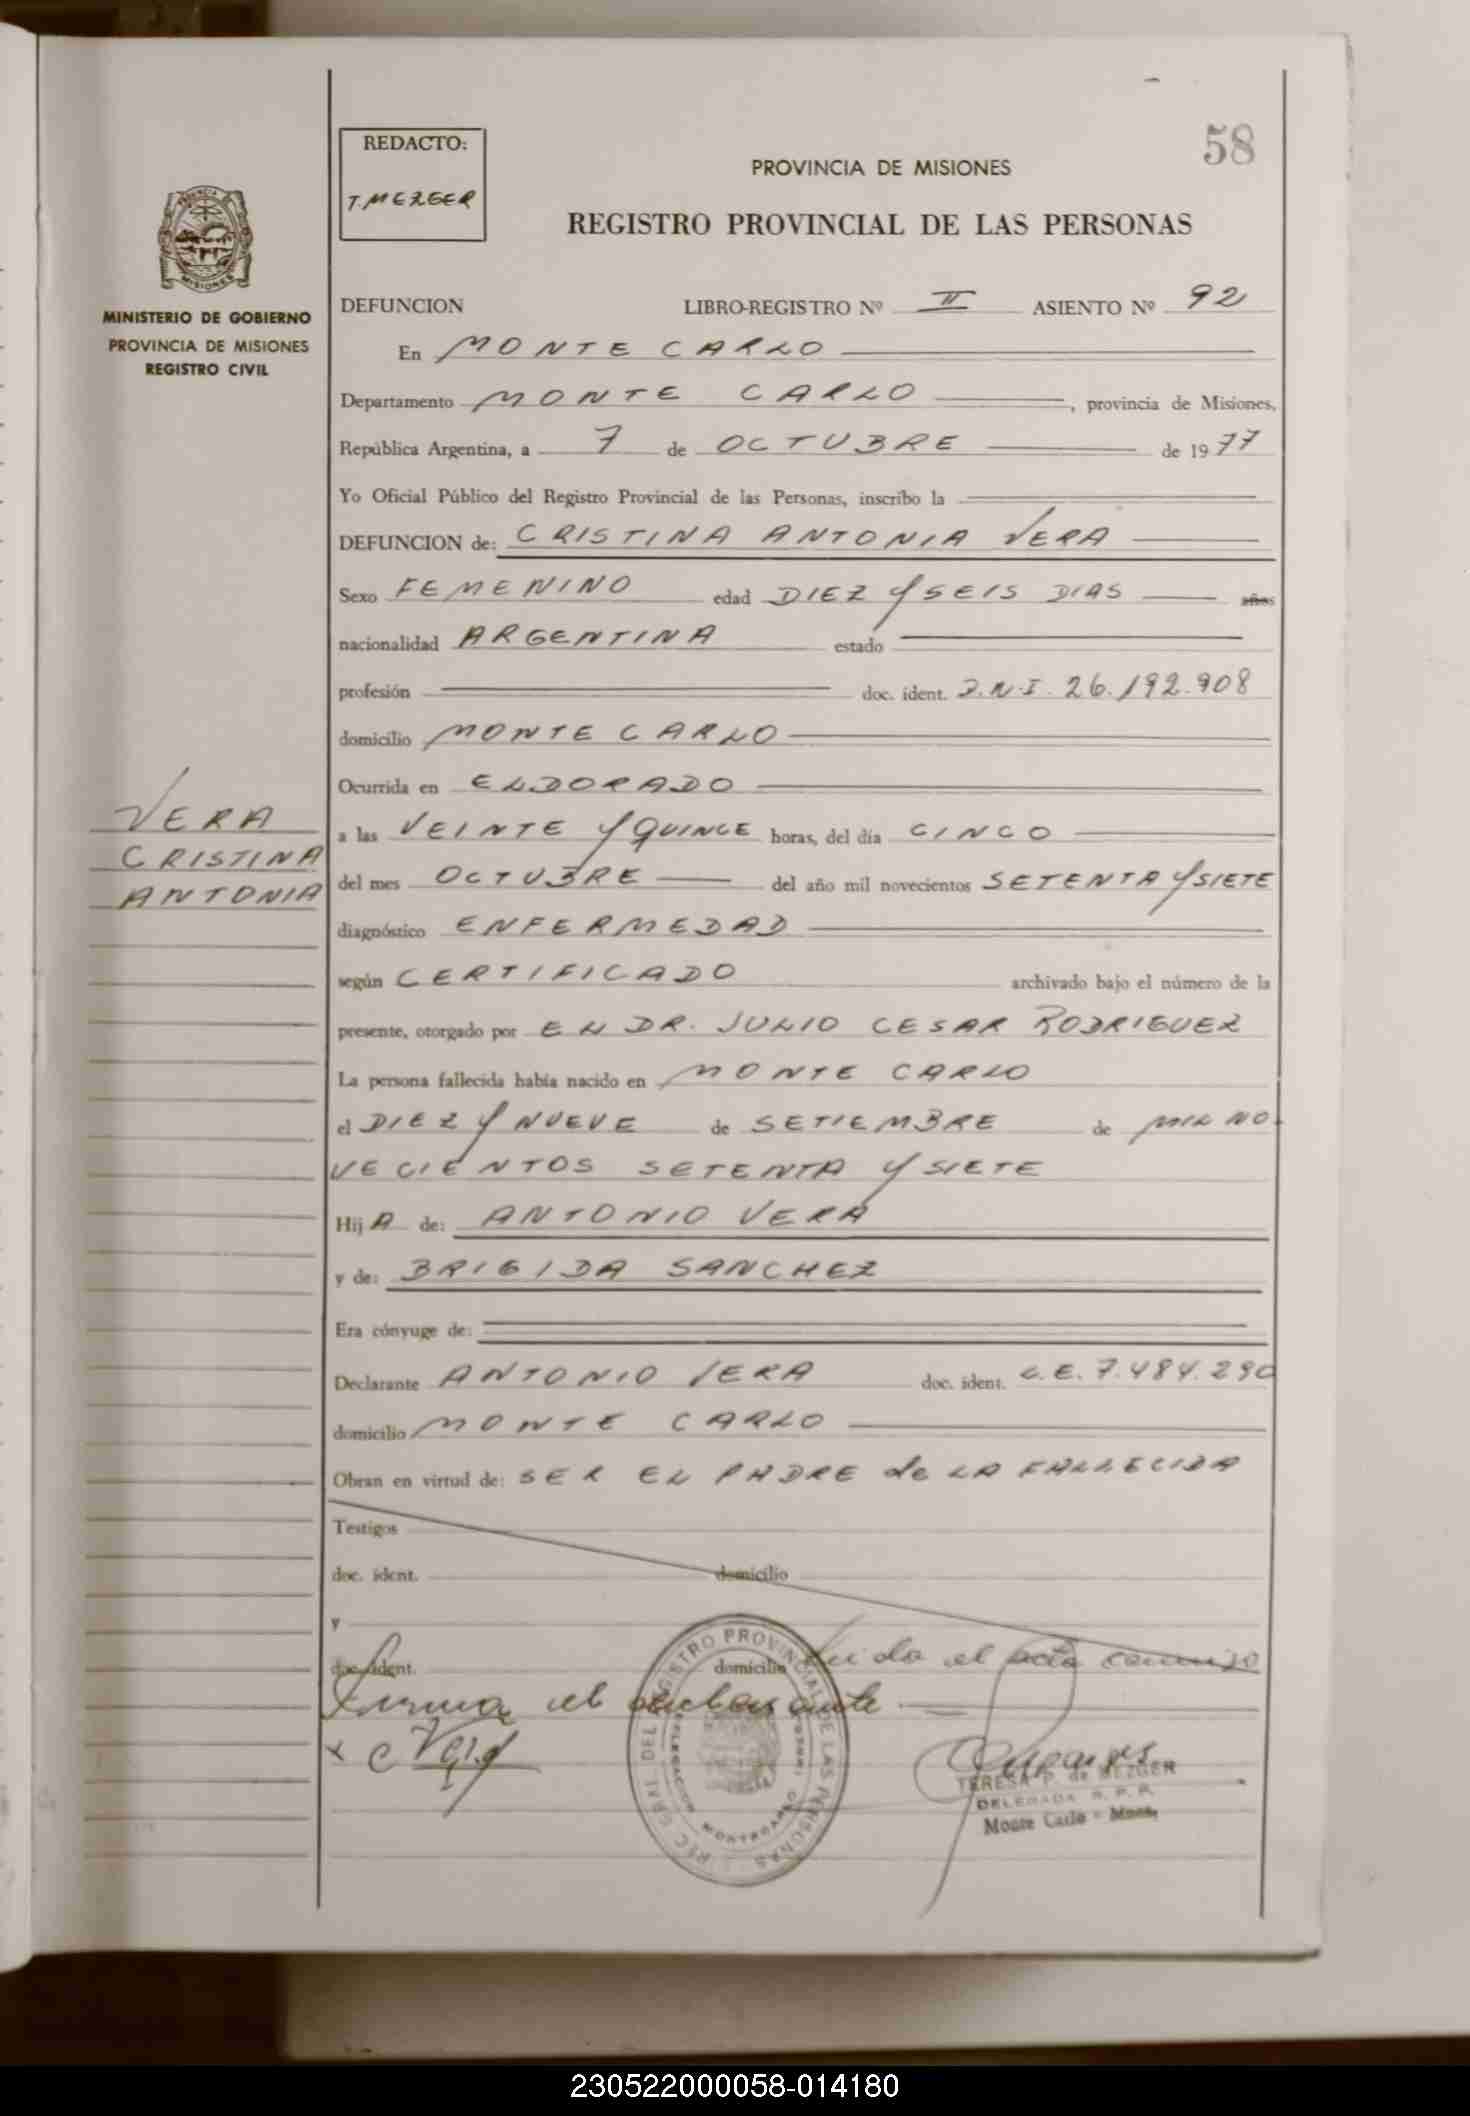 58
REDACTO:
T. MEZGER
PROVINCIA DE MISIONES
REGISTRO PROVINCIAL DE LAS PERSONAS
PROVINCIA
MISIONES
MINISTERIO DE GOBIERNO
PROVINCIA DE MISIONES
REGISTRO CIVIL
DEFUNCION LIBRO-REGISTRO Nº II ASIENTO Nº 92
En MONTE CARLO
Departamento MONTE CARLO, provincia de Misiones,
República Argentina, a 7 de OCTUBRE de 1977
Yo Oficial Público del Registro Provincial de las Personas, inscribo la
DEFUNCION de: CRISTINA ANTONIA VERA
Sexo FEMENINO edad DIEZ Y SEIS DIAS años
nacionalidad ARGENTINA estado
profesión doc. ident. D.N.I. 26.192.908
domicilio MONTE CARLO
Ocurrida en ELDORADO
VERA
CRISTINA
ANTONIA
a las VEINTE Y QUINCE horas, del día CINCO
del mes OCTUBRE del año mil novecientos SETENTA Y SIETE
diagnóstico ENFERMEDAD
según CERTIFICADO archivado bajo el número de la
presente, otorgado por EL DR. JULIO CESAR RODRIGUEZ
La persona fallecida había nacido en MONTE CARLO
el DIEZ Y NUEVE de SETIEMBRE de MIL NO-
VECIENTOS SETENTA Y SIETE
Hij A de: ANTONIO VERA
y de: BRIGIDA SANCHEZ
Era cónyuge de:
Declarante ANTONIO VERA doc. ident. L.E. 7.484.290
domicilio MONTE CARLO
Obran en virtud de: SER EL PADRE de LA FALLECIDA
Testigos
doc. ident. domicilio
y
doc. ident. domicilio Leida el acta conmigo
firma el declarante
REG. GRAL. DEL REGISTRO PROVINCIAL DE LAS PERSONAS
DELEGACION MONTECARLO
TERESA P. de MEZGER
DELEGADA R. P. P.
Monte Carlo - Mnes.
230522000058-014180